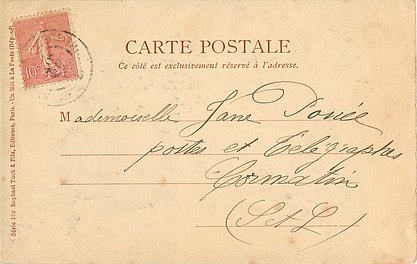 CARTE POSTALE
Ce côté est exclusivement réservé à l'adresse.
Mademoiselle Jane
postes et Télégraphes
Cormatin
(S et L)
Série 139 Raphael Tuck & Fils, Editeurs, Paris.
10